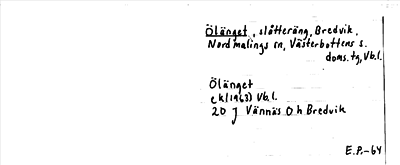 Ölänget, slåtteräng, Bredvik,
Nordmalings sn, Västerbottens s.
doms. tg, Vb.l.
Ölänget
ek(1963) Vb.l.
20 J Vännäs O h Bredvik
E.P.-64